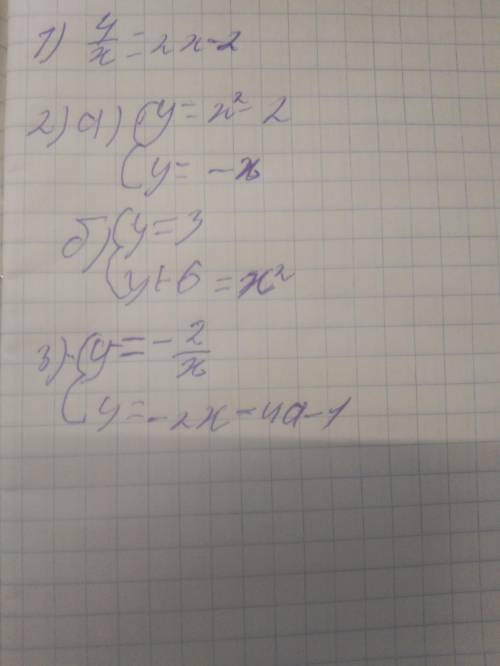 1) 4/x = 2x-2
2) а) { y = x² - 2
{ y = -x
б) { y = 3
{ y + 6 = x²
3) { y = - 2/x
{ y = -2x - 4a - 1